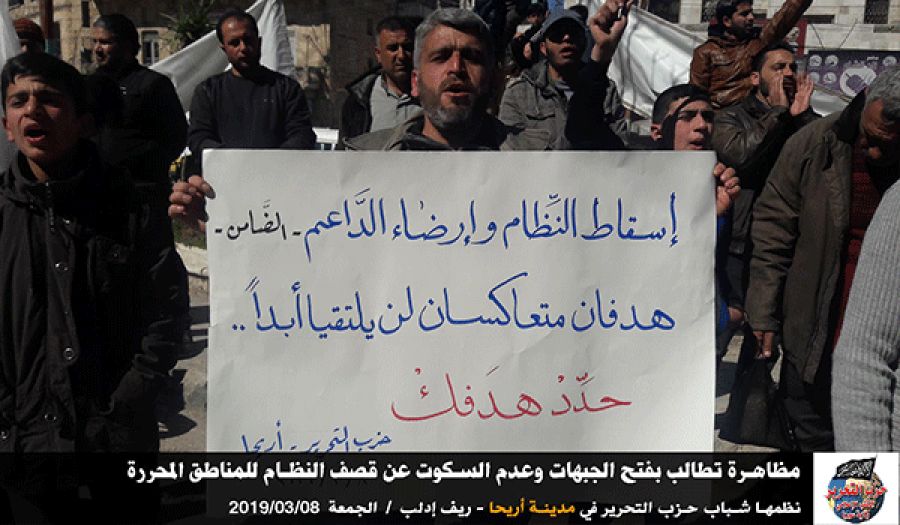 إسقاط النِّظام وإرضاء الدَّاعم - الضَّامن -
هدفان متعاكسان لن يلتقيا أبداً..
حدِّدْ هدفكْ
حزب التحرير - أريحا
مظاهرة تطالب بفتح الجبهات وعدم السكوت عن قصف النظام للمناطق المحررة
نظمها شباب حزب التحرير في مدينة أريحا - ريف إدلب / الجمعة 2019/03/08
حزب التحرير